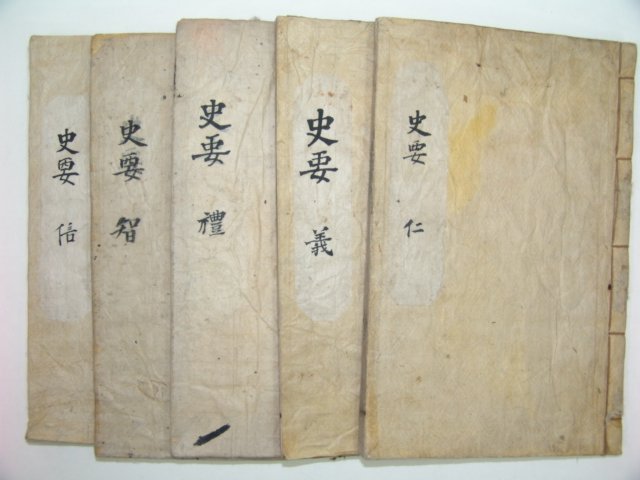 史要 仁
史要 義
史要 禮
史要 智
史要 信